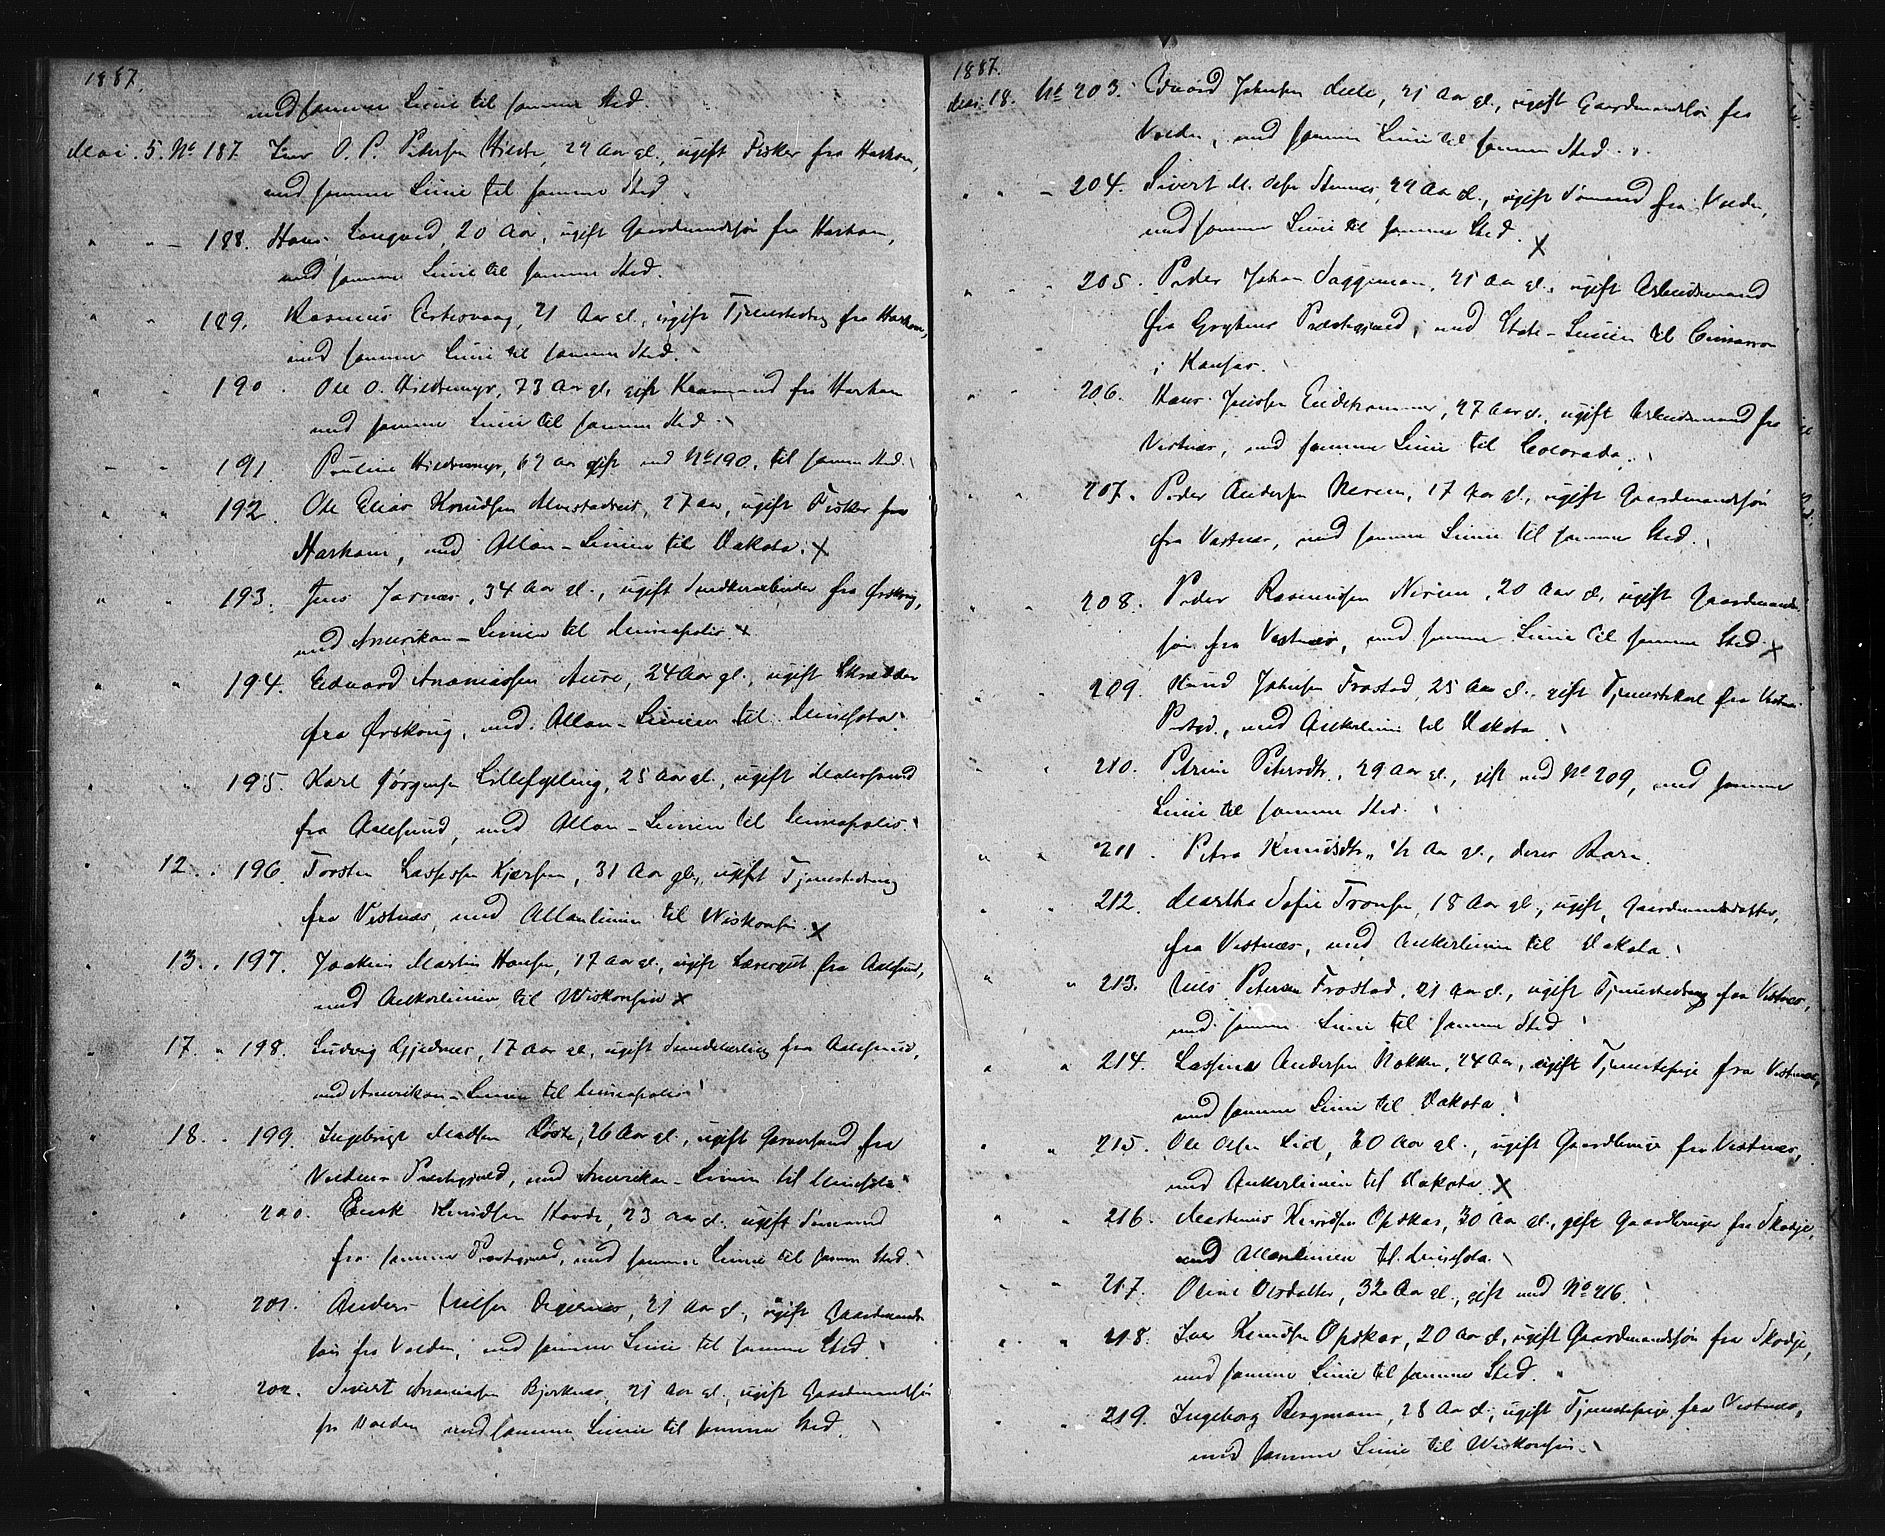 1887.
med samme Linie til samme Sted.
Mai. 5. No 187. Iver O. P. Pedersen Hildre, 29 Aar gl., ugift Fisker fra Harham,
med samme Linie til samme Sted.
" " – 188. Hans Longvad, 20 Aar, ugift Gaardmandssøn fra Harham,
med samme Linie til samme Sted.
" " 189. Rasmus 21 Aar gl., ugift Tjenestedreng fra Harham,
med samme Linie til samme Sted.
" " 190. Ole O. Hildremyr, 73 Aar gl., gift Kaarmand fra Harham
med samme Linie til samme Sted.
" " 191. Pauline Hildremyr, 69 Aar gift med No 190, til samme Sted.
" " 192. Ole Elias Knudsen 27 Aar, ugift Fisker fra
Harham, med Allan-Linien til Dakota. x
" " 193. Jens Jarnæs, 34 Aar gl., ugift Snedkerarbeider fra Ørskoug,
med Amerikan-Linien til Minneapolis. x
" " 194. Edvard Ananiassen Aure, 24 Aar gl., ugift Skrædder
fra Ørskoug, med Allan-Linien til Minnesota.
" " 195. Karl Jørgensen Lillefjelling, 25 Aar gl., ugift Malersvend
fra Aalesund, med Allan-Linien til Minneapolis.
" 12. . 196. Torsten Lassesen Kjersen, 31 Aar gl., ugift Tjenestedreng
fra Vestnæs, med Allanlinien til Wiskonsin. x
" 13. . 197. Joakim Martin Hansen, 17 Aar gl., ugift Læregut fra Aalesund,
med Ankerlinien til Wiskonsin x
" 17. " 198. Ludvig Gjednæs, 17 Aar gl., ugift fra Aalesund,
med Amerikan-Linien til Minneapolis
" 18. . 199. Ingebrigt Madsen Løste, 26 Aar gl., ugift Garversvend fra
Voldens Præstegjæld, med Amerikan-Linien til Minnesota.
" " 200. Knudsen Hovde, 23 Aar gl. ugift Sømand
fra samme Præstegjæld, med samme Linie til samme Sted.
" " 201. Anders Nilsen Digernæs, 21 Aar gl., ugift Gaardmands-
søn fra Volden, med samme Linie til samme Sted.
" " 202. Sivert Ananiassen Bjerknæs, 21 Aar gl., ugift Gaardmandssøn
fra Volden med samme Linie til samme Sted.
1887.
Mai. 18. No 203. Edvard Johnsen Mele, 21 Aar gl., ugift Gaardmandssøn fra
Volden, med samme Linie til samme Sted.
" " – 204. Sivert M. Olsen 22 Aar gl., ugift Sømand fra Volden,
med samme Linie til samme Sted. x
" " " 205. Peder Johan Vaggeman, 21 Aar gl., ugift Arbeidsmand
fra Grytens Præstegjæld, med State-Linien til Cimarron
i Kansas.
" " 206. Hans Jensen Eidshammer, 27 Aar gl. ugift Arbeidsmand fra
Vestnæs, med samme Linie til Colorado.
" " 207. Peder Andersen Nerem, 17 Aar gl., ugift Gaardmandssøn
fra Vestnæs, med samme Linie til samme Sted.
" " 208. Peder Rasmussen Nerem, 20 Aar gl., ugift Gaardmands-
søn fra Vestnæs, med samme Linie til samme Sted. x
" " 209. Knud Johnsen Frostad, 25 Aar gl., gift Tjenestekarl fra Vestnæs
Prstgd., med Ankerlinien til Dakota
" " 210. Petrine Petersdtr., 29 Aar gl., gift med No 209, med samme
Linie til samme Sted.
" " 211. Petra Knudsdtr., ½ Aar gl., deres Barn.
" " 212. Martha Sofie Tronsen, 18 Aar gl., ugift, Gaardmandsdatter,
fra Vestnæs, med Ankerlinien til Dakota.
" " 213. Nils Petersen Frostad, 21 Aar gl., ugift Tjenestedreng fra Vestnæs,
med samme Linie til samme Sted
" " 214. Lassine Andersen Rokken, 24 Aar, ugift Tjenestepige fra Vestnæs,
med samme Linie til Dakota.
" " 215. Ole Olsen Lid, 30 Aar gl., ugift Gaardbruger fra Vestnæs,
med Ankerlinien til Dakota. x
" " 216. Martinus Knudsen Opskar, 30 Aar gl., gift Gaardbruger fra Skodje,
med Allanlinien til Minnesota.
" " 217. Oline Olsdatter, 32 Aar gl., gift med No 216.
" " 218. Iver Knudsen Opskar, 20 Aar gl., ugift Gaardmandssøn fra Skodje,
med samme Linie til samme Sted.
" " 219. Ingeborg Bergmann, 28 Aar gl., ugift Tjenestepige fra Vestnæs,
med samme Linie til Wiskonsin.